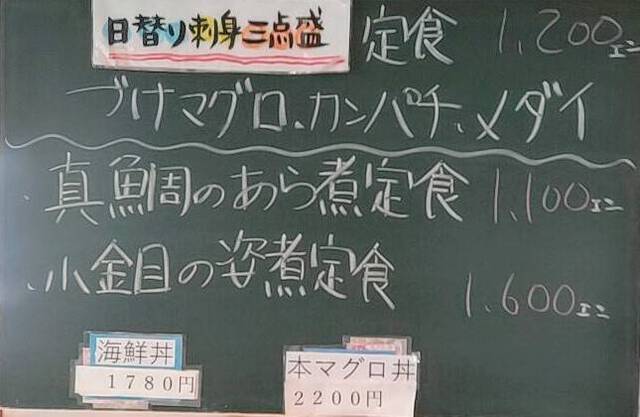 日替り刺身三点盛 定食 1,200エン
づけマグロ、カンパチ、メダイ
・真鯛のあら煮定食 1,100エン
・小金目の姿煮定食 1,600エン
海鮮丼
1780円
本マグロ丼
2200円